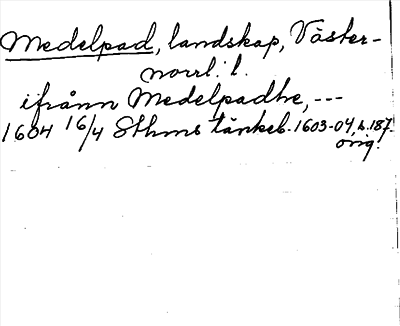 Medelpad, landskap, Väster-
norrl. l.
ifrånn Medelpadhe, ---
1604 16/4 Sthms tänkeb. 1603-04, s. 187.
orig.